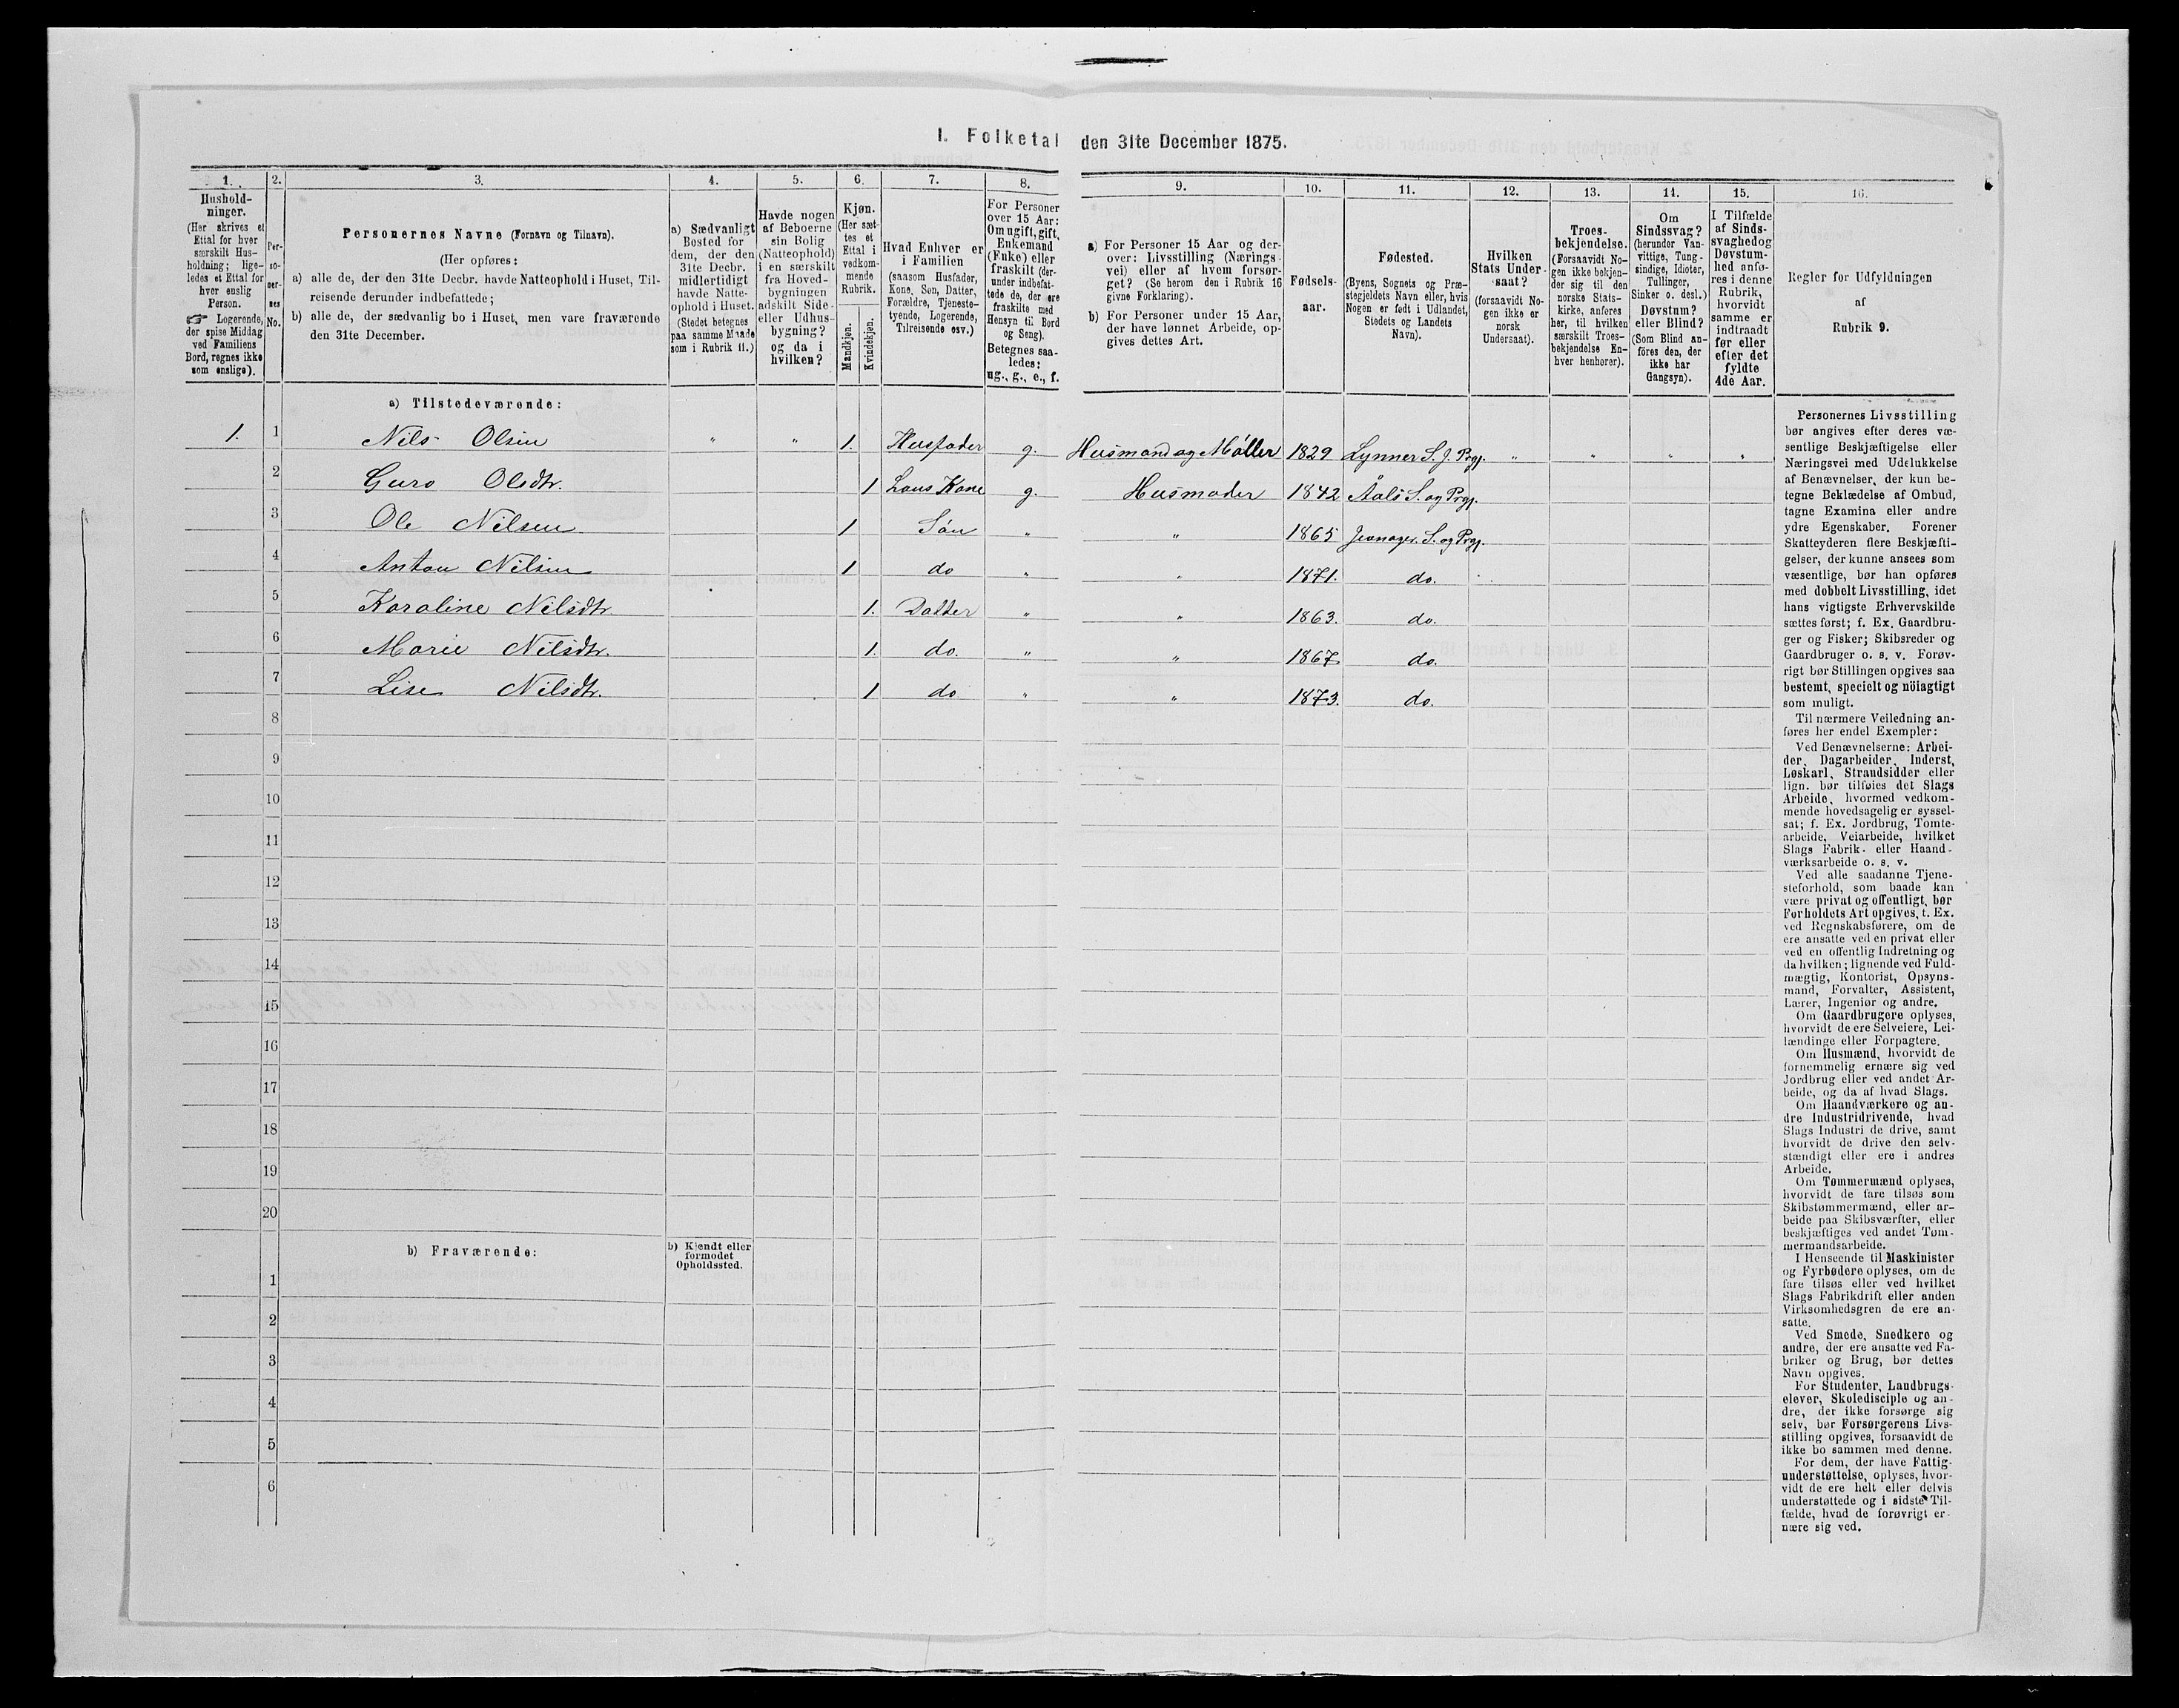 I. Folketal den 31te December 1875.
1. 2. 3. 4. 5. 6. 7. 8. 9. 10. 11. 12. 13. 14. 15. 16.
Hushold-
ninger.
(Her skrives et
Ettal for hver
særskilt Hus-
holdning; lige-
ledes et Ettal for
hver enslig
Person.
☞ Logerende,
der spise Middag
ved Familiens
Bord, regnes ikke
som enslige).
Per-
so-
ner-
nes
No.
Personernes Navne (Fornavn og Tilnavn).
(Her opføres:
a) alle de, der den 31te Decbr. havde Natteophold i Huset, Til-
reisende derunder indbefattede;
b) alle de, der sædvanlig bo i Huset, men vare fraværende
den 31te December.
a) Sædvanligt
Bosted for
dem, der den
31te Decbr.
midlertidigt
havde Natte-
ophold i Huset.
(Stedet betegnes
paa samme Maade
som i Rubrik 11.)
Havde nogen
af Beboerne
sin Bolig
(Natteophold)
i en særskilt
fra Hoved-
bygningen
adskilt Side-
eller Udhus-
bygning?
og da i
hvilken?
Kjøn.
(Her sæt-
tes et
Ettal i
vedkom-
mende
Rubrik.
Mandkjøn.
Kvindekjøn.
Hvad Enhver er
i Familien
(saasom Husfader,
Kone, Søn, Datter,
Forældre, Tjeneste-
tyende, Logerende,
Tilreisende osv.)
For Personer
over 15 Aar:
Om ugift, gift,
Enkemand
(Enke) eller
fraskilt (der-
under indbefat-
tede de, der ere
fraskilte med
Hensyn til Bord
og Seng).
Betegnes saa-
ledes:
ug., g., e., f.
a) For Personer 15 Aar og der-
over: Livsstilling (Nærings-
vei) eller af hvem forsør-
get? (Se herom den i Rubrik 16
givne Forklaring).
b) For Personer under 15 Aar,
der have lønnet Arbeide, op-
gives dettes Art.
Fødsels-
aar.
Fødested.
(Byens, Sognets og Præ-
stegjeldets Navn eller, hvis
Nogen er født i Udlandet,
Stedets og Landets
Navn).
Hvilken
Stats Under-
saat?
(forsaavidt No-
gen ikke er
norsk
Undersaat).
Troes-
bekjendelse.
(Forsaavidt No-
gen ikke bekjen-
der sig til den
norske Stats-
kirke, anføres
her, til hvilken
særskilt Troes-
bekjendelse En-
hver henhører).
Om
Sindssvag?
(herunder Van-
vittige, Tung-
sindige, Idioter,
Tullinger,
Sinker o. desl.)
Døvstum?
eller Blind?
(Som Blind an-
föres den, der
ikke har
Gangsyn).
I Tilfælde
af Sinds-
svaghed og
Døvstum-
hed anfø-
res i denne
Rubrik,
hvorvidt
samme er
indtraadt
før eller
efter det
fyldte
4de Aar.
Regler for Udfyldningen
af
Rubrik 9.
a) Tilstedeværende:
1. 1 Nils Olsen " " 1. Husfader g. Husmand og Møller 1829 Lynner S. J. Prgj. " " " "
2 Guro Olsdtr. 1 Hans Kone g. Husmoder 1842 Åals S. og Prgj.
3 Ole Nilsen 1 Søn " " 1865 Jevnager. S. og Prgj.
4 Anton Nilsen 1 do " " 1871. do.
5 Karoline Nilsdtr. 1. Datter " " 1863. do.
6 Marie Nilsdtr. 1. do. " " 1867. do.
7 Lise Nilsdtr. 1 do " " 1873. do.
8
9
10
11
12
13
14
15
16
17
18
19
20
b) Fraværende:
b) Kjendt eller
formodet
Opholdssted.
1
2
3
4
5
6
Personernes Livsstilling
bør angives efter deres væ-
sentlige Beskjæftigelse eller
Næringsvei med Udelukkelse
af Benævnelser, der kun be-
tegne Beklædelse af Ombud,
tagne Examina eller andre
ydre Egenskaber. Forener
Skatteyderen flere Beskjæfti-
gelser, der kunne ansees som
væsentlige, bør han opføres
med dobbelt Livsstilling, idet
hans vigtigste Erhvervskilde
sættes først; f. Ex. Gaardbru-
ger og Fisker; Skibsreder og
Gaardbruger o. s. v. Forøv-
rigt bør Stillingen opgives saa
bestemt, specielt og nöiagtigt
som muligt.
Til nærmere Veiledning an-
føres her endel Exempler:
Ved Benævnelserne: Arbei-
der, Dagarbeider, Inderst,
Løskarl, Strandsidder eller
lign. bør tilføies det Slags
Arbeide, hvormed vedkom-
mende hovedsagelig er syssel-
sat; f. Ex. Jordbrug, Tomte-
arbeide, Veiarbeide, hvilket
Slags Fabrik- eller Haand-
værksarbeide o. s. v.
Ved alle saadanne Tjene-
steforhold, som baade kan
være privat og offentligt, bør
Forholdets Art opgives, t. Ex.
ved Regnskabsførere, om de
ere ansatte ved en privat eller
ved en offentlig Indretning og
da hvilken; lignende ved Fuld-
mægtig, Kontorist, Opsyns-
mand, Forvalter, Assistent,
Lærer, Ingeniør og andre.
Om Gaardbrugere oplyses,
hvorvidt de ere Selveiere, Lei-
lændinge eller Forpagtere.
Om Husmænd, hvorvidt de
fornemmelig ernære sig ved
Jordbrug eller ved andet Ar-
beide, og da af hvad Slags.
Om Haandværkere og an-
dre Industridrivende, hvad
Slags Industri de drive, samt
hvorvidt de drive den selv-
stændigt eller ere i andres
Arbeide.
Om Tømmermænd oplyses,
hvorvidt de fare tilsøs som
Skibstømmermænd, eller ar-
beide paa Skibsværfter, eller
beskjæftiges ved andet Tøm-
mermandsarbeide.
I Henseende til Maskinister
og Fyrbødere oplyses, om de
fare tilsøs eller ved hvilket
Slags Fabrikdrift eller anden
Virksomhedsgren de ere an-
satte.
Ved Smede, Snedkere og
andre, der ere ansatte ved Fa-
briker og Brug, bør dettes
Navn opgives.
For Studenter, Landbrugs-
elever, Skoledisciple og an-
dre, der ikke forsørge sig
selv, bør Forsørgerens Livs-
stilling opgives, forsaavidt de
ikke bo sammen med denne.
For dem, der have Fattig-
understøttelse, oplyses, hvor-
vidt de ere helt eller delvis
understøttede og i sidste Til-
fælde, hvad de forøvrigt er-
nære sig ved.